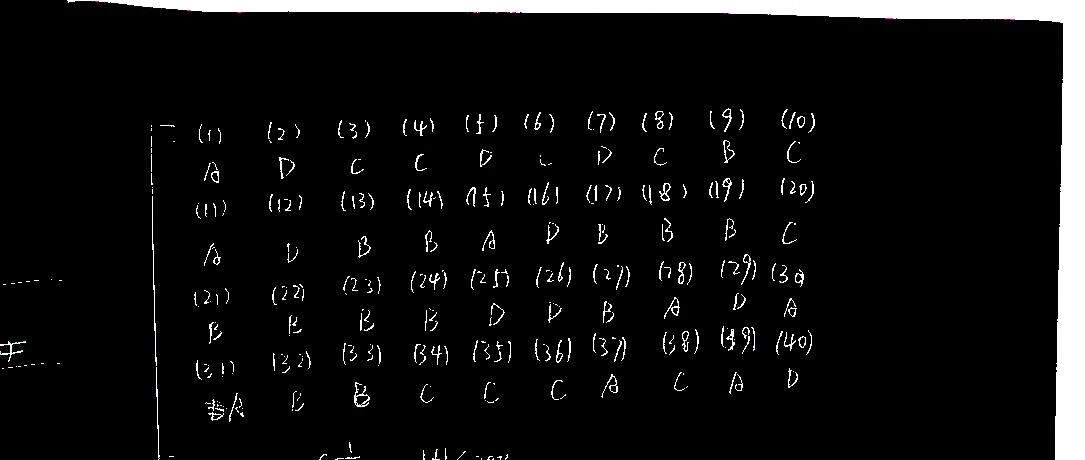 一、 (1) (2) (3) (4) (5) (6) (7) (8) (9) (10)
A D C C D C D C B C
(11) (12) (13) (14) (15) (16) (17) (18) (19) (20)
A D B B A D B B B C
(21) (22) (23) (24) (25) (26) (27) (28) (29) (30)
B B B B D D B A D A
(31) (32) (33) (34) (35) (36) (37) (38) (39) (40)
A B B C C C A C A D